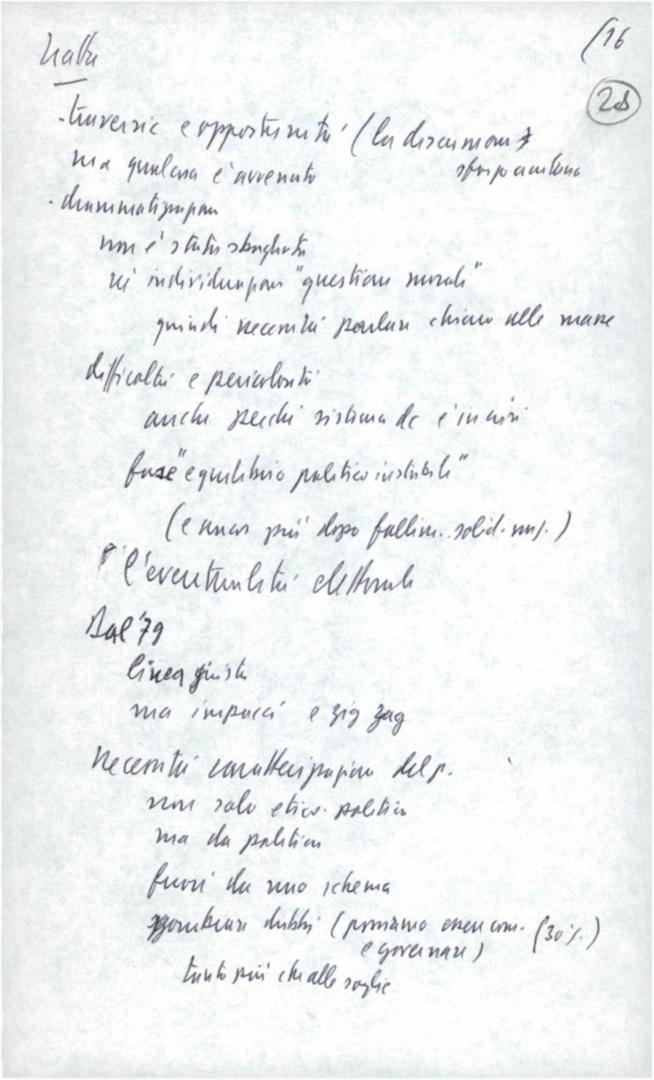 Natta
/16
28
- traversie e opportunità (la discussione
ma qualcosa è avvenuto
- drammatizzazione
non è stata sbagliata
né individuazione "questione morale"
quindi necessità parlare chiaro alle masse
difficoltà e pericolosità
anche perché sistema dc è in crisi
fase "equilibrio politico instabile"
(e ancor più dopo fallim. solid. naz.)
l'eventualità elettorale
Dal '79
linea giusta
ma impacci e zig zag
Necessità caratterizzazione del p.
non solo etico-politica
ma da politica
fuori da uno schema
sgombrare dubbi (possiamo essere com. (30%)
e governare)
tanto più che alle soglie